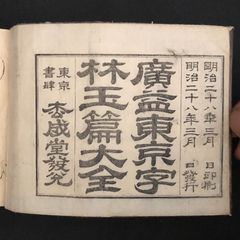 明治二十八年三月　日印刷
明治二十八年三月　日發行
廣益東京字
林玉篇大全
東京
書肆
杢成堂發兌